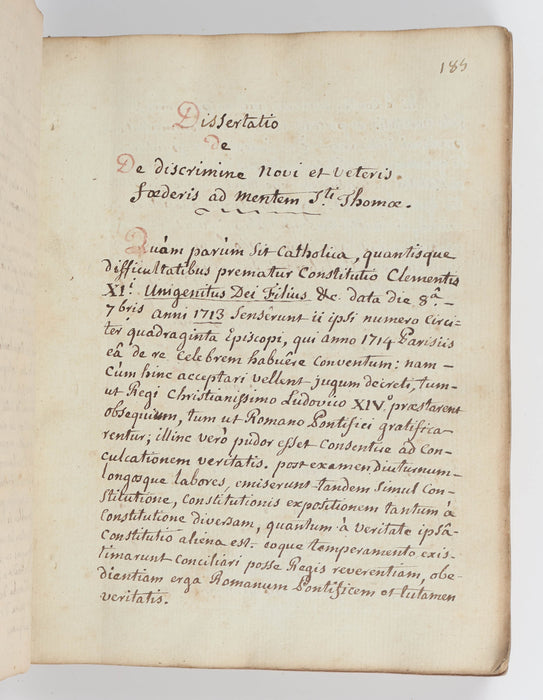 185
Dissertatio
de
De discrimine novi et veteris
fœderis ad mentem S.ti Thomœ.
Quàm parùm sit Catholica, quantisque
difficultatibus prematur Constitutio Clementis
XI.i Unigenitus Dei Filius &c. data die 8.a
7bris anni 1713 senserunt ii ipsi numero Circi-
tèr quadraginta Episcopi, qui anno 1714 Parisiis
eâ de re Celebrem habuêre Conventum: nam-
Cùm hinc acceptari vellent jugum decreti, tum-
ut Regi Christianissimo Ludovico XIV.o præstarent
obsequium, tum ut Romano Pontifici gratifica
rentur; illinc verò pudor esset Consentire ad Con-
culcationem veritatis. post examen diuturnum
longosque labores, emiserunt tandem simul Con-
stitutione, Constitutionis expositionem tantum à
Constitutione diversam, quantum à veritate ipsâ
Constitutio aliena est. eoque temperamento exis-
timarunt Conciliari posse Regis reverentiam, obe-
dientiam erga Romanum Pontificem et tutamen
veritatis.